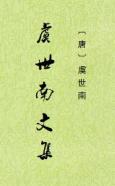 〔唐〕虞世南
虞世南文集